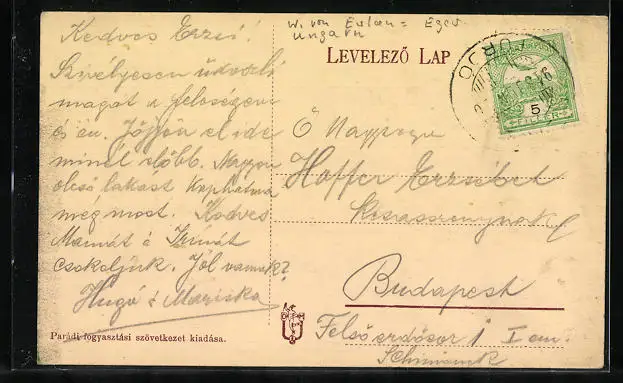 W. von Erlau = Eger
Ungarn
LEVELEZŐ LAP
Kedves Erzsi!
Szivélyesen üdvözli
magát a feleségem
és én. Jöjjön el ide
minél előbb. Nagyon
olcsó lakást kaphatna
még most. Kedves
Mamát és Irénát
csókoljuk. Jól vannak?
Hugó & Mariska
Ő Nagysága
Hoffer Erzsébet
kisasszonynak
Budapest
Felső erdősor 1 I em.
5
FILLÉR
Parádi fogyasztási szövetkezet kiadása.